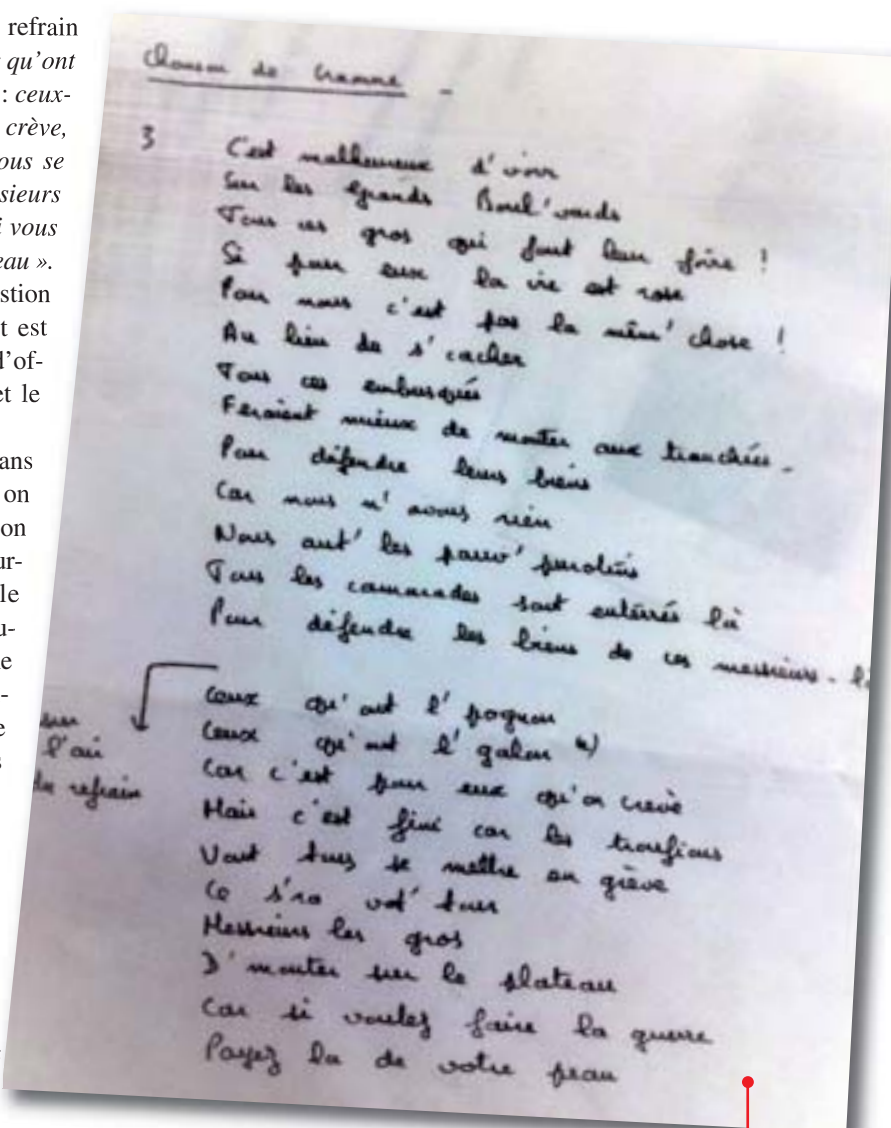 refrain
qu'ont
: ceux-
crève,
ous se
sieurs
i vous
eau ».
stion
t est
d'of-
et le
ans
on
on
ur-
le
u-
e
-
e
s
Chanson de Craonne -
3 C'est malheureux d'voir
Sur les grands Boul'vards
Tous ces gros qui font leur foire !
Si pour eux la vie est rose
Pour nous c'est pas la mêm' chose !
Au lieu de s'cacher
Tous ces embusqués
Feraient mieux de monter aux tranchées -
Pour défendre leurs biens
Car nous n'avons rien
Nous aut' les pauv' purotins
Tous les camarades sont enterrés là
Pour défendre les biens de ces messieurs-
sur l'air du refrain
Ceux qu'ont l'pognon
Ceux qu'ont l'galon
Car c'est pour eux qu'on crève
Mais c'est fini car les troufions
Vont tous se mettre en grève
Ce s'ra vot' tour
Messieurs les gros
D'monter sur le plateau
Car si voulez faire la guerre
Payez la de votre peau